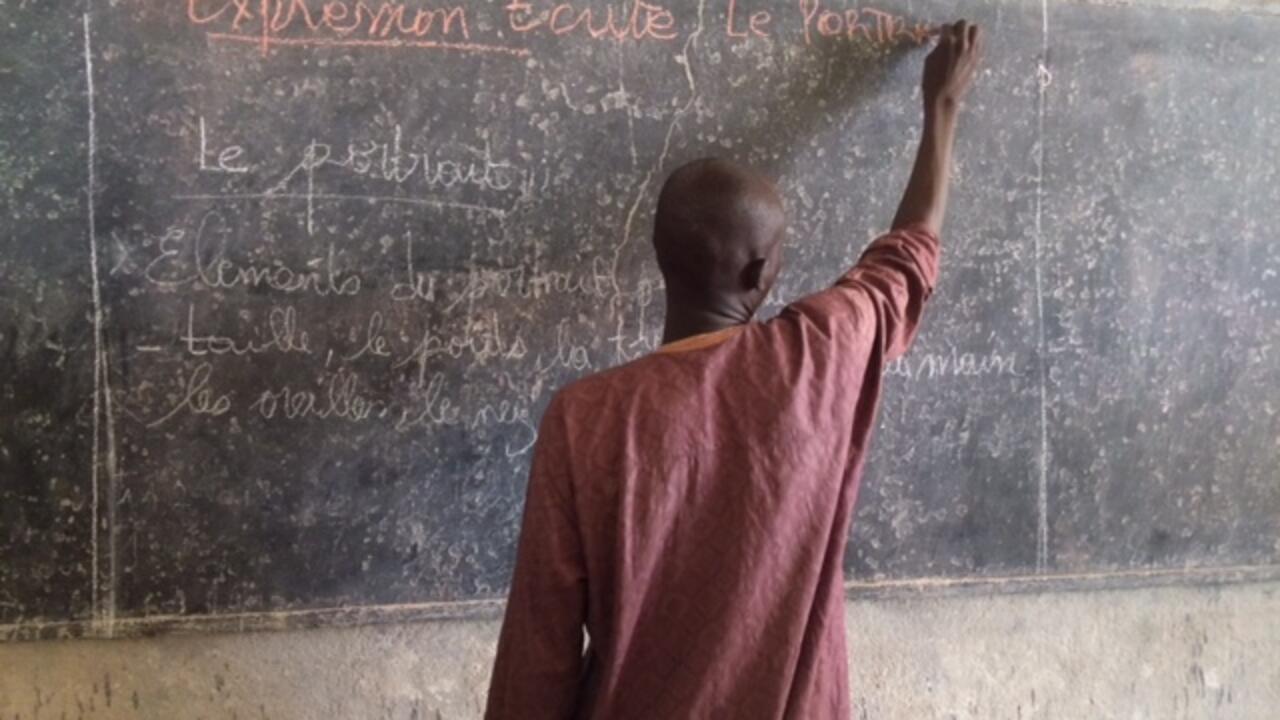 Expression Ecrite Le PORTRA
Le portrait
Elements du portrait
- taille, le poids, la
les oreilles, le nez